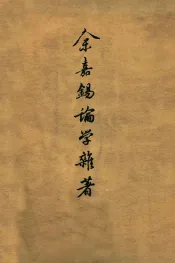 余嘉锡论学雜著